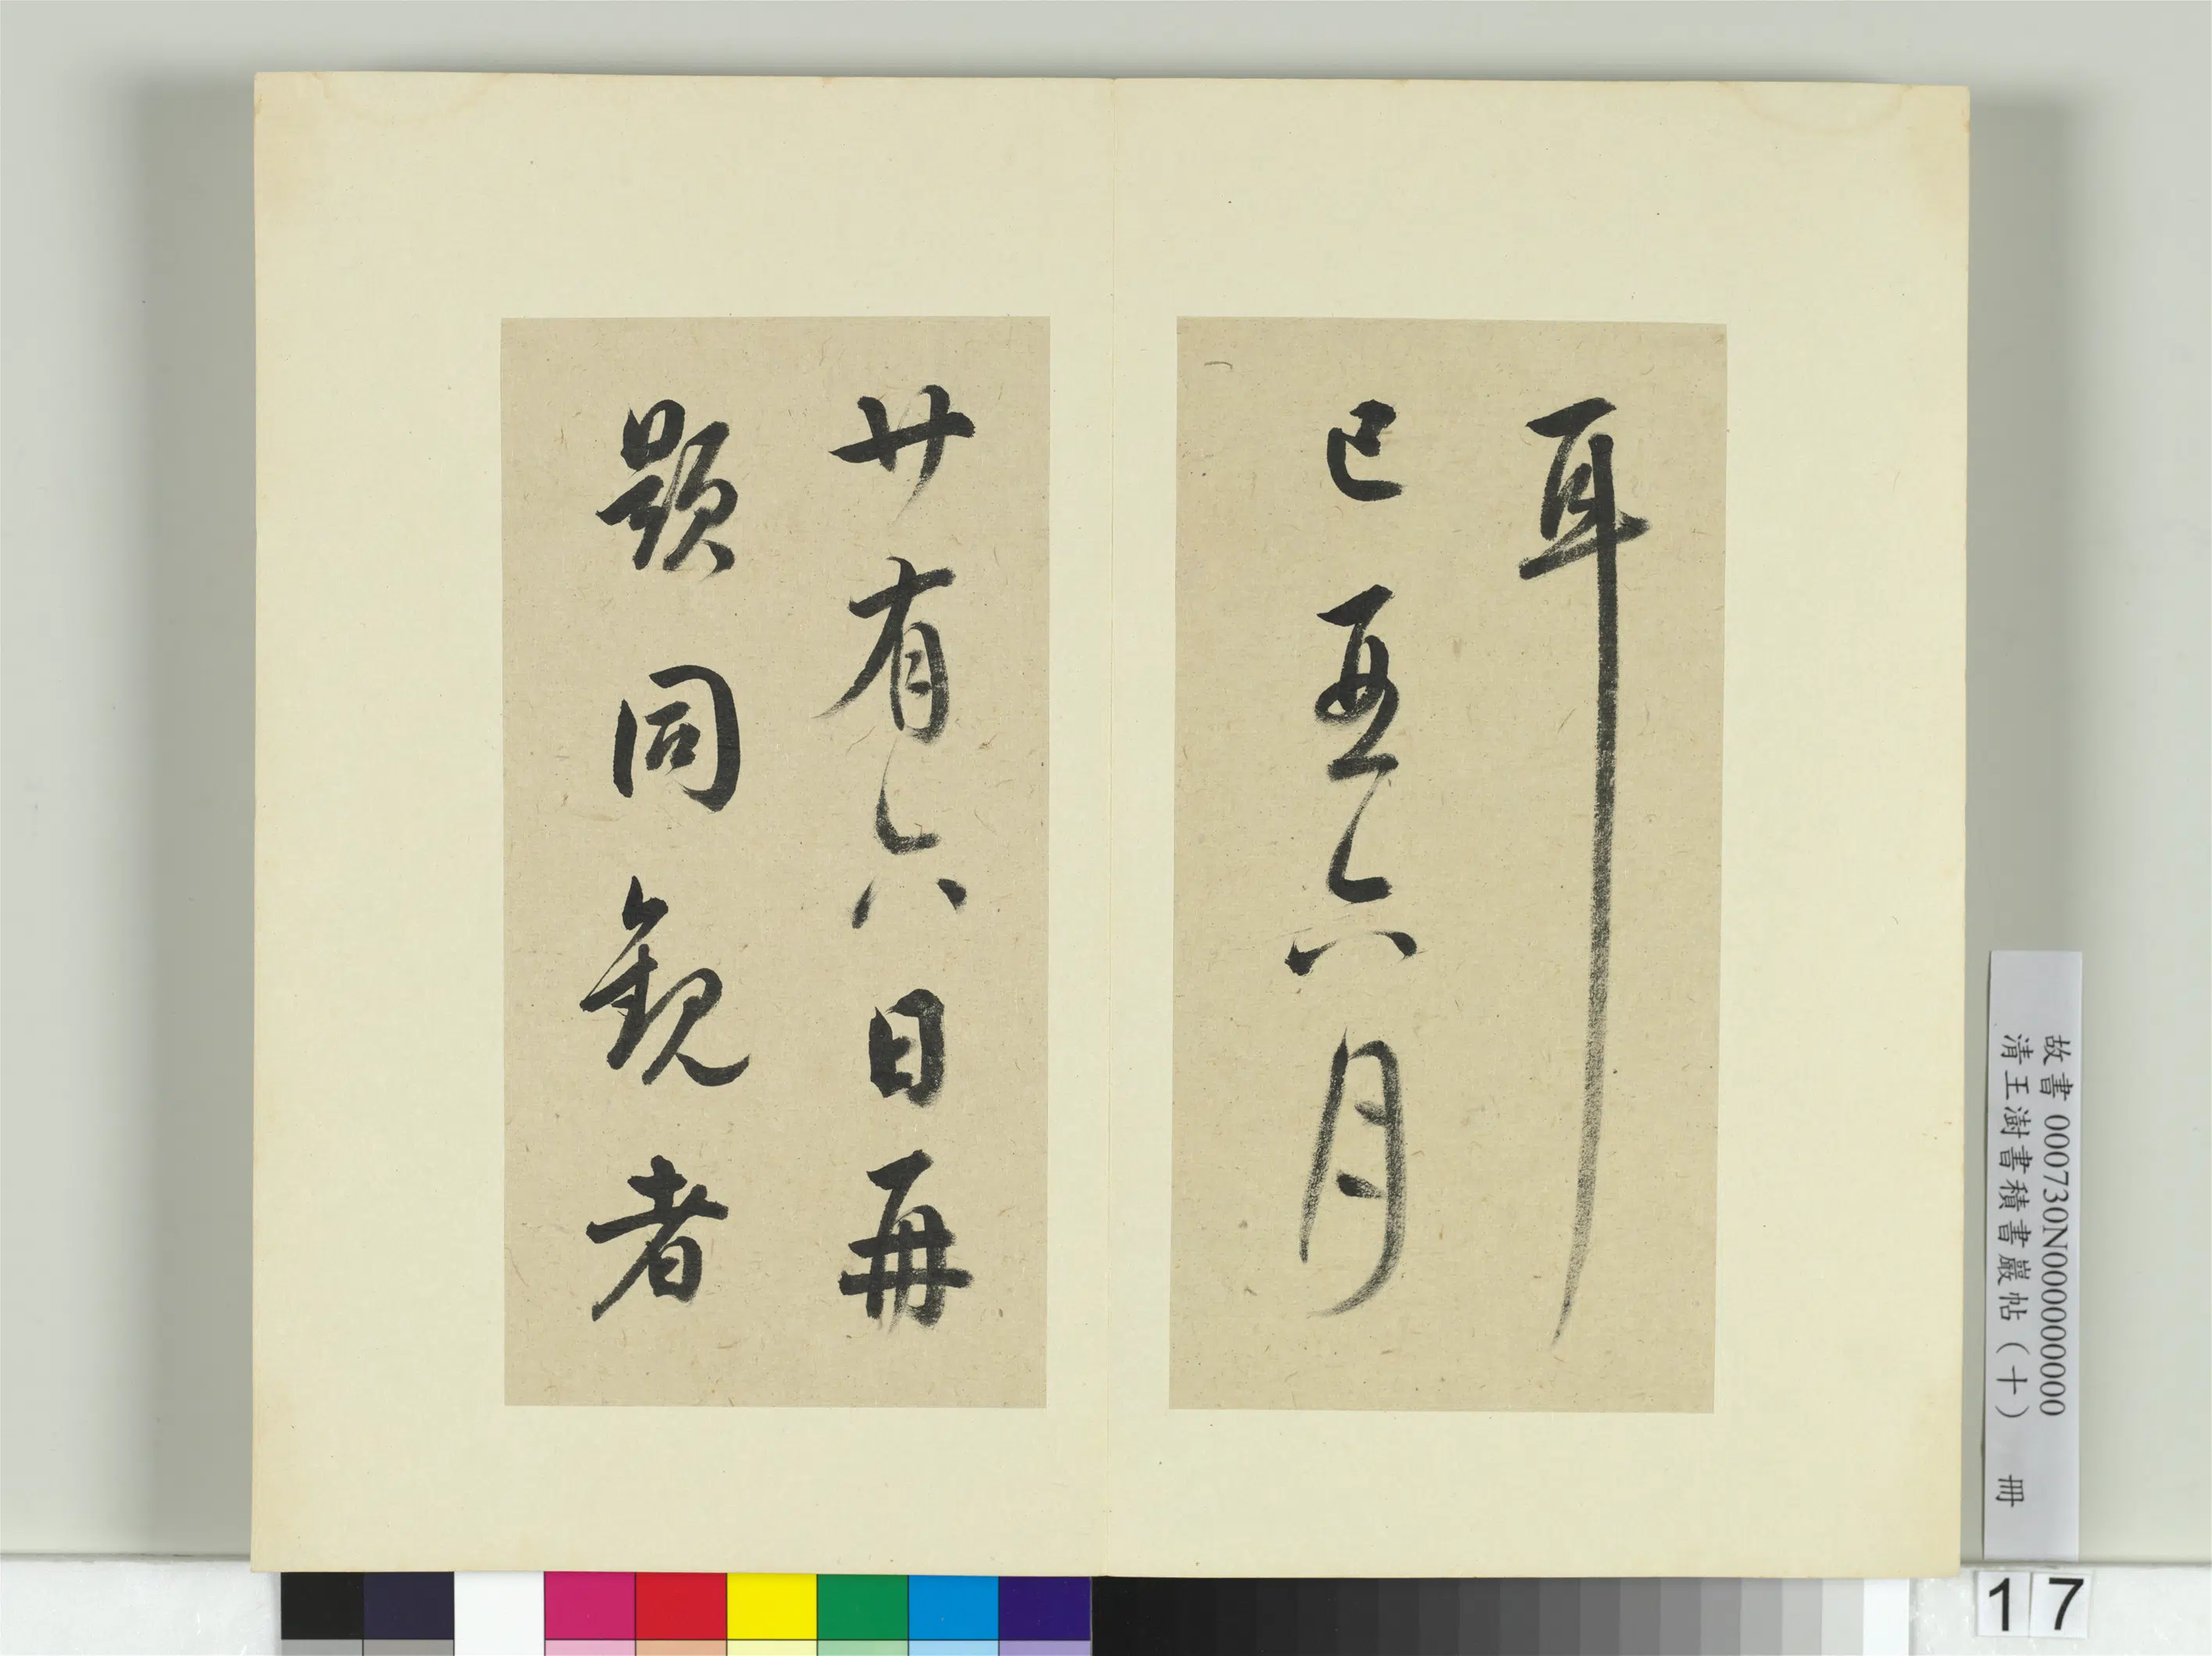 耳
已六月
廿有六日再
題同観者
故書 000730N000000000
清王澍書積書巖帖（十） 冊
17